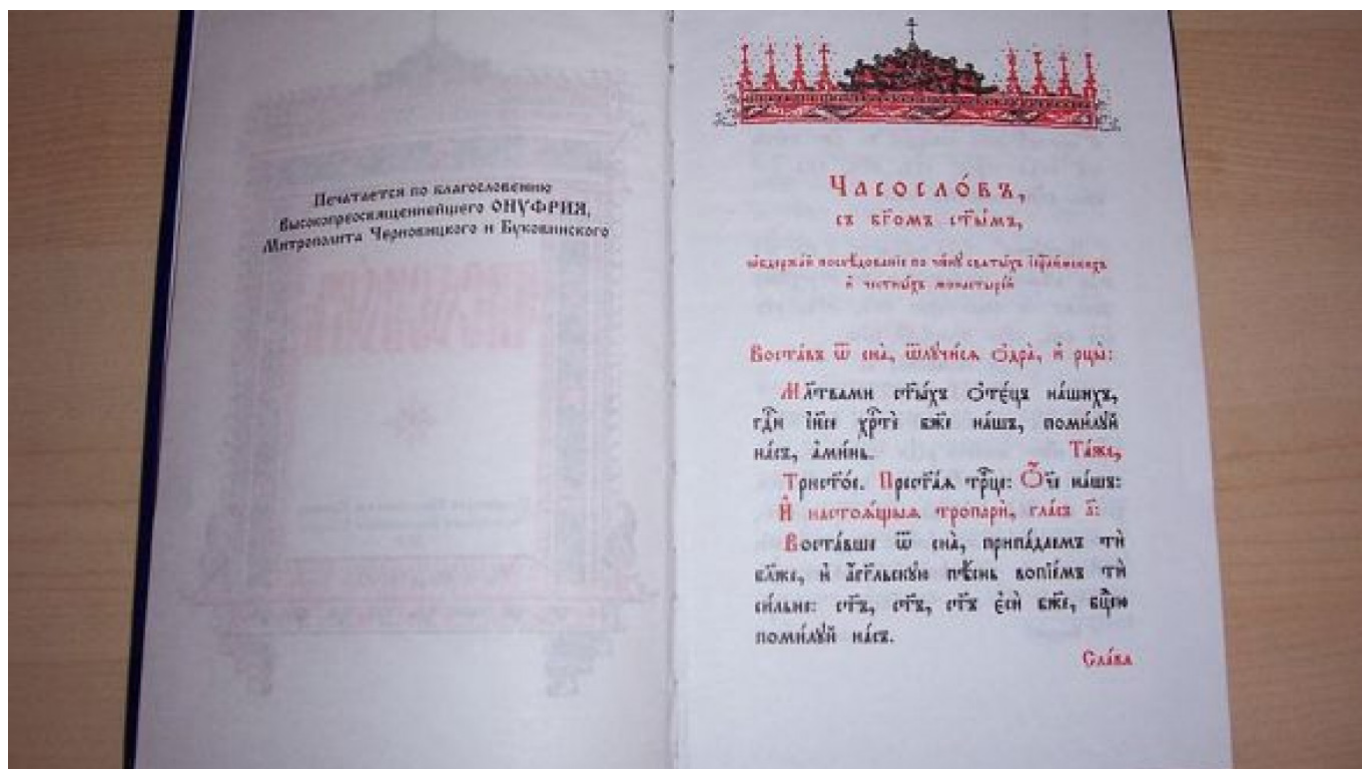 Печатается по благословению
Высокопреосвященнейшего ОНУФРИЯ,
Митрополита Черновицкого и Буковинского
Часосло́въ,
съ бг҃омъ ст҃ы́мъ,
ѡ҆держа́й послѣ́дованїе по чи́нꙋ святы́хъ і҆ерⷭ҇ли́мскихъ
и҆ честны́хъ монастыре́й
Воста́въ ѿ сна̀, ѿлꙋчи́сѧ ѻ҆дра̀, и҆ рцы̀:
Мл҃твами ст҃ы́хъ ѻ҆тє́цъ на́шихъ,
гдⷭ҇и і҆и҃се хрⷭ҇тѐ бж҃е на́шъ, поми́лꙋй
на́съ, а҆ми́нь. Та́же,
Трист҃о́е. Прест҃а́ѧ трⷪ҇це: Ѻ҆́ч҃е на́шъ:
И҆ настоѧ́щыѧ тропарѝ, гла́съ а҃:
Воста́вше ѿ сна̀, припа́даемъ тѝ
бл҃же, и҆ а҆́гг҃льскꙋю пѣ́снь вопїе́мъ тѝ
си́льне: ст҃ъ, ст҃ъ, ст҃ъ є҆сѝ бж҃е, бцⷣею
поми́лꙋй на́съ.
Сла́ва